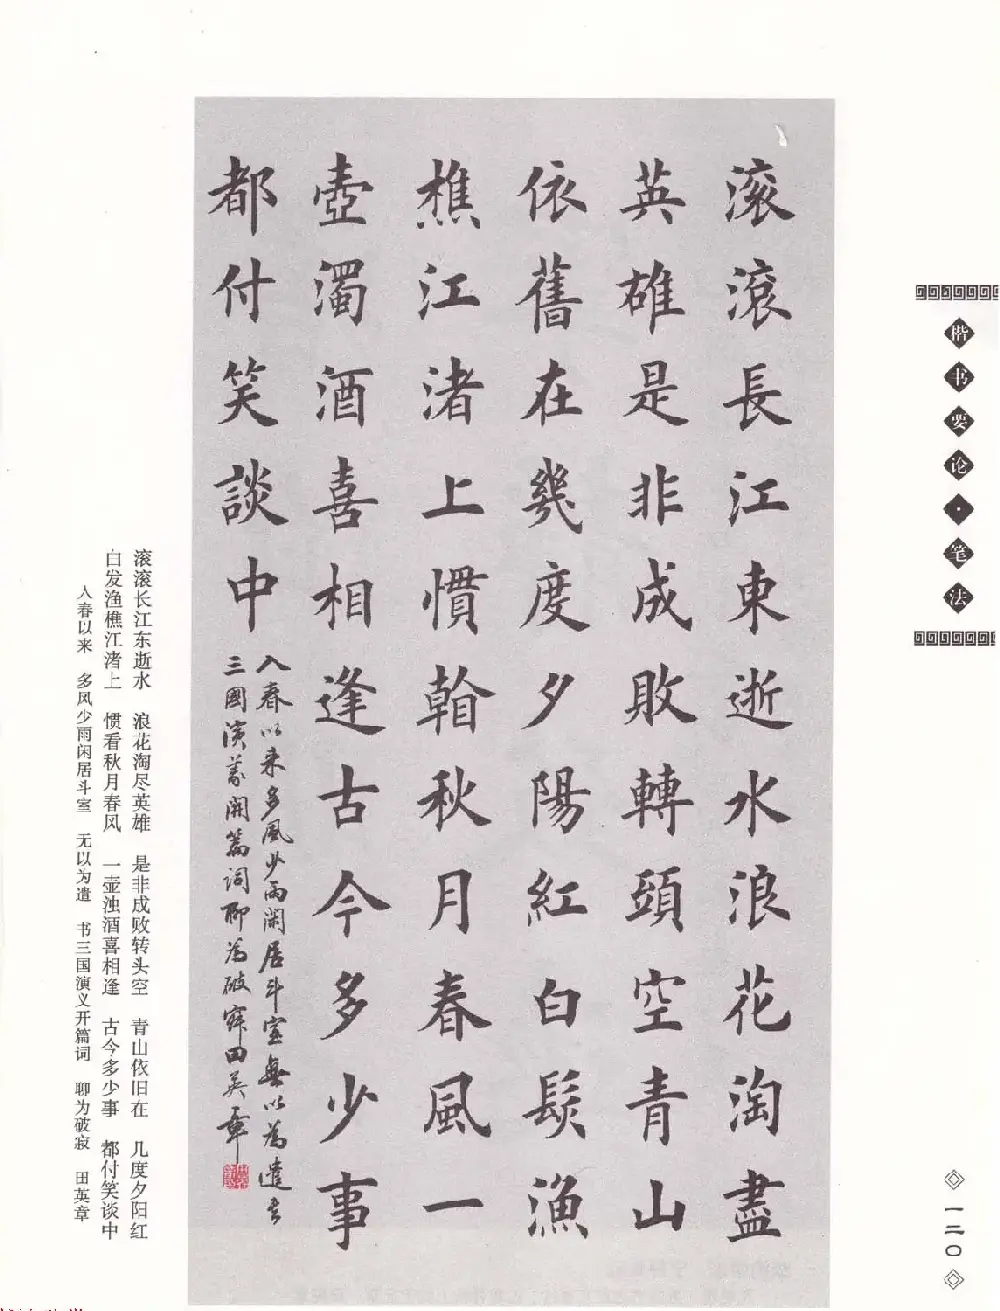 楷书要论·笔法
一二〇
滚滾長江東逝水浪花淘盡
英雄是非成敗轉頭空青山
依舊在幾度夕陽紅白髮漁
樵江渚上慣看秋月春風一
壺濁酒喜相逢古今多少事
都付笑談中
入春以来多風少雨閑居斗室無以為遣書
三國演義開篇詞聊為破寂田英章
滚滚长江东逝水 浪花淘尽英雄 是非成败转头空 青山依旧在 几度夕阳红
白发渔樵江渚上 惯看秋月春风 一壶浊酒喜相逢 古今多少事 都付笑谈中
入春以来 多风少雨闲居斗室 无以为遣 书三国演义开篇词 聊为破寂 田英章